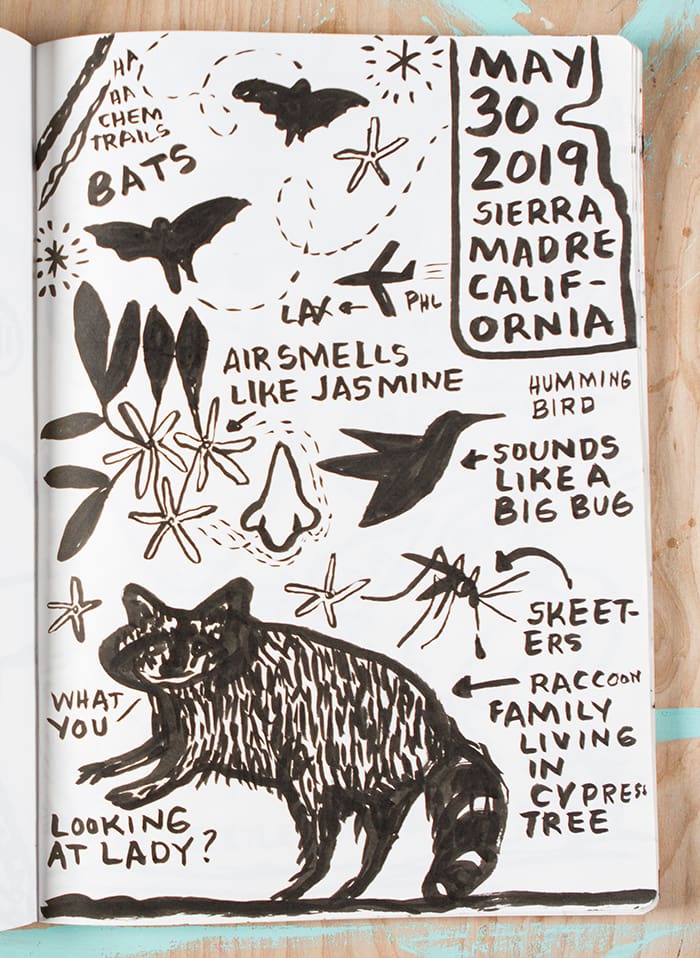 HA
HA
CHEM
TRAILS
BATS
MAY
30
2019
SIERRA
MADRE
CALIF-
ORNIA
LAX
PHL
AIR SMELLS
LIKE JASMINE
HUMMING
BIRD
SOUNDS
LIKE A
BIG BUG
SKEET-
ERS
RACCOON
FAMILY
LIVING
IN
CYPRESS
TREE
WHAT
YOU
LOOKING
AT LADY?